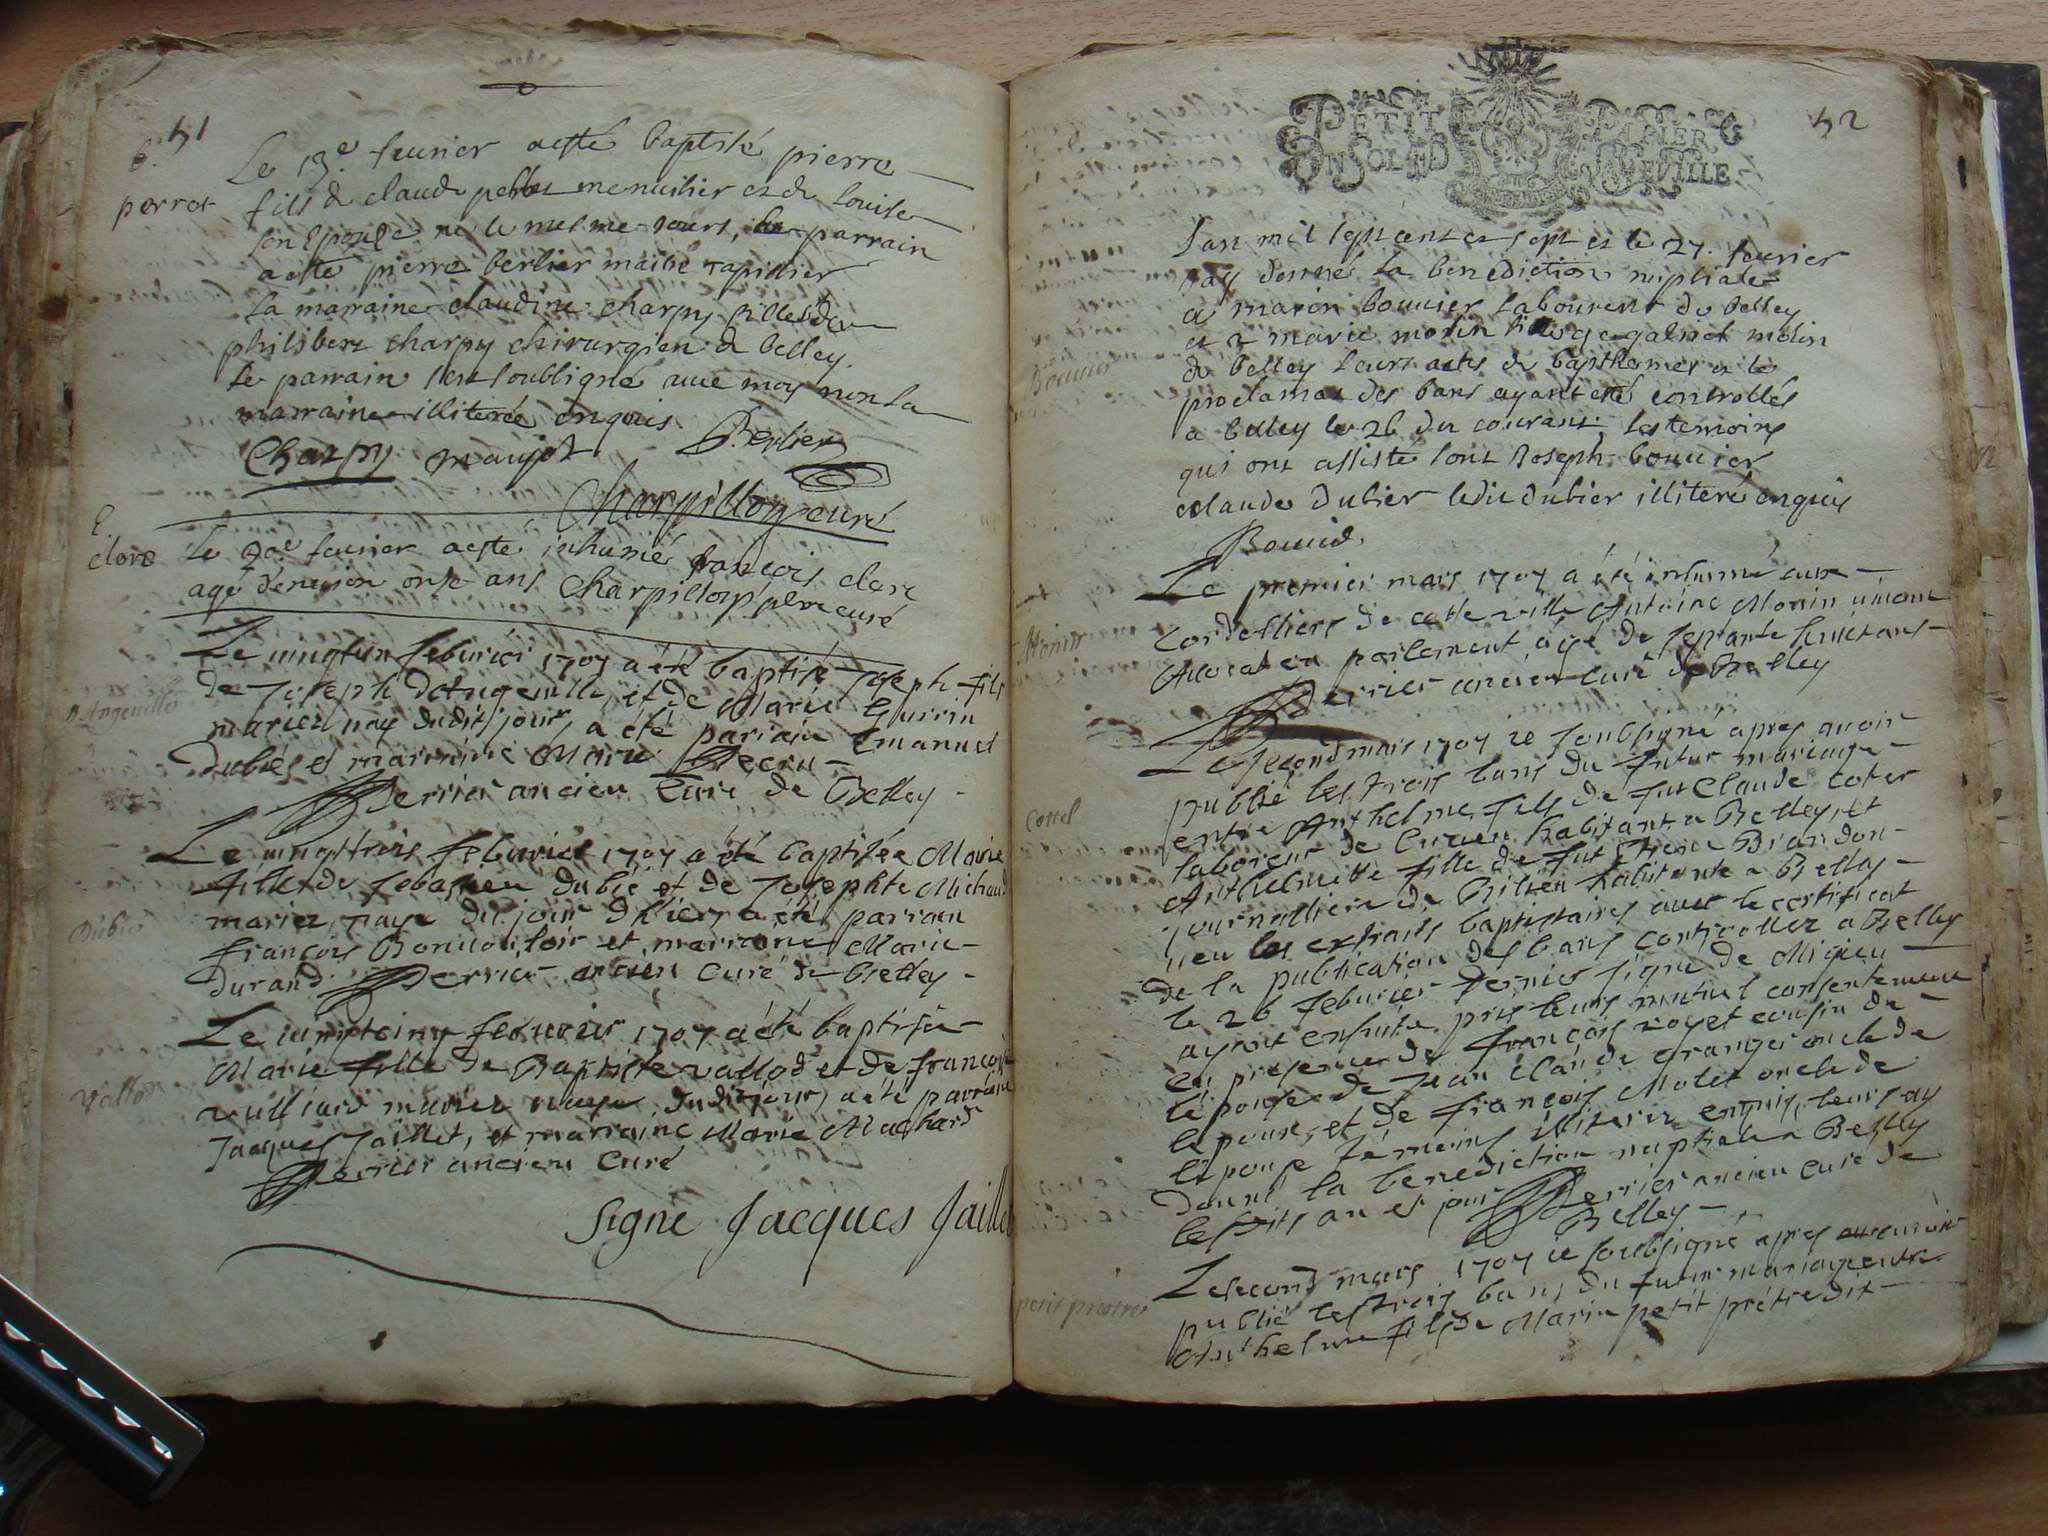 51
b.
perrot
Le 13e feurier aesté baptisé pierre
fils de claude perrot menuisier et de louise
son Epouse né le mesme jour, le parrain
aesté pierre berlier maître tapissier
la marraine claudine charpy fille de
philibert charpy chirurgien de belley
le parrain sest soubsigné auec moy non la
marraine illiterée enquis
Charpy maujot Berlier
Charpilloz curé
E.
clerc
le 20e feurier aesté inhumé francois clerc
agé denuiron onze ans Charpilloz curé
D'Angeuille
Le uingtun feburier 1707 a été baptisé Joseph fils
de Joseph D'Angeuille, et de Marie Guerrin
mariez nay dudit jour, a été parrain Emanuel
Dubiés et marraine Marie
Berrier ancien Curé de Belley
Dubié
Le uingttrois feburier 1707 a été baptisée Marie
fille de Sebastien Dubié et de Josephte Michaud
mariez, naye du jour d'hier, a été parrain
françois et marraine Marie
Durand Berrier ancien curé de Belley
Vallod
Le uingtcinq feburier 1707 a été baptisée
Marie fille de Baptiste vallod et de françoise
vulliard mariez naye dudit jour, a été parrain
Jacques Jaillet, et marraine Marie Machard
Berrier ancien Curé
Signé Jacques Jaillet
52
PETIT PAPIER
UN SOL LA FEVILLE
Bouuier
L'an mil sept cent et sept et le 27. feurier
jay donné la benediction nuptiale
a marin bouuier laboureur de belley
et a marie molin fille de gabriel molin
de belley leurs actes de bapthesmes et le
proclamat des bans ayant eté controllés
a belley le 26 du courant, les temoins
qui ont assisté sont Joseph bouuier
claude dubier ledit dubier illiteré enquis
Bouuié
Monin
Le premier mars 1707 a été inhumé aux
Cordelliers de cette ville Antoine Monin uiuant
Auocat en parlement, agé de septante huict ans
Berrier ancien curé de Belley
Cottel
Le second mars 1707 ie soubsigné apres auoir
publié les trois bans du futur mariage
entre Anthelme fils de fut Claude Coter
laboreur de habitant a Belley, et
Anthelmette fille de fut Brandon
journalliere de habitante a Belley
ueu les extraits baptistaires auec le certificat
de la publication des bans controollez a Belley
le 26 feburier dernier signé de Migieu
ayant ensuite pris leurs mutuel consentement
en presence de françois royet cousin de
l'epouse de Jean Claude Granger oncle de
lepoux, et de françois Molet oncle de
l'epouse témoins illiterez enquis, leurs ay
donné la benediction nuptiale a Belley
lesdits an et jour Berrier ancien curé de
Belley
petit prêtre
Le second mars 1707 ie soubsigné apres auoir
publié les trois bans du futur mariage entre
Anthelme fils de Marin petit prêtre dit